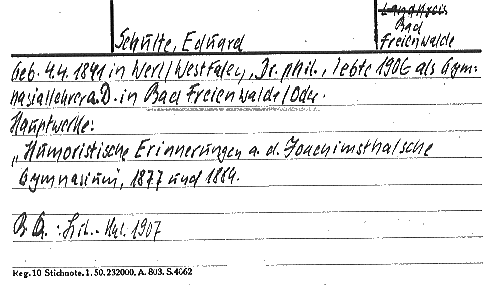 Landkreis
Schulte, Eduard
Bad
Freienwalde
Geb. 4.4.1841 in Werl/Westfalen, Dr. phil., lebte 1906 als Gym-
nasiallehrer a.D. in Bad Freienwalde/Oder.
Hauptwerke:
„Humoristische Erinnerungen a. d. Joachimsthalsche
Gymnasium", 1877 und 1884.
B Qu.: Lit.-Kal. 1907
Reg. 10 Stichnote. 1. 50. 232000, A. 803. S. 4062